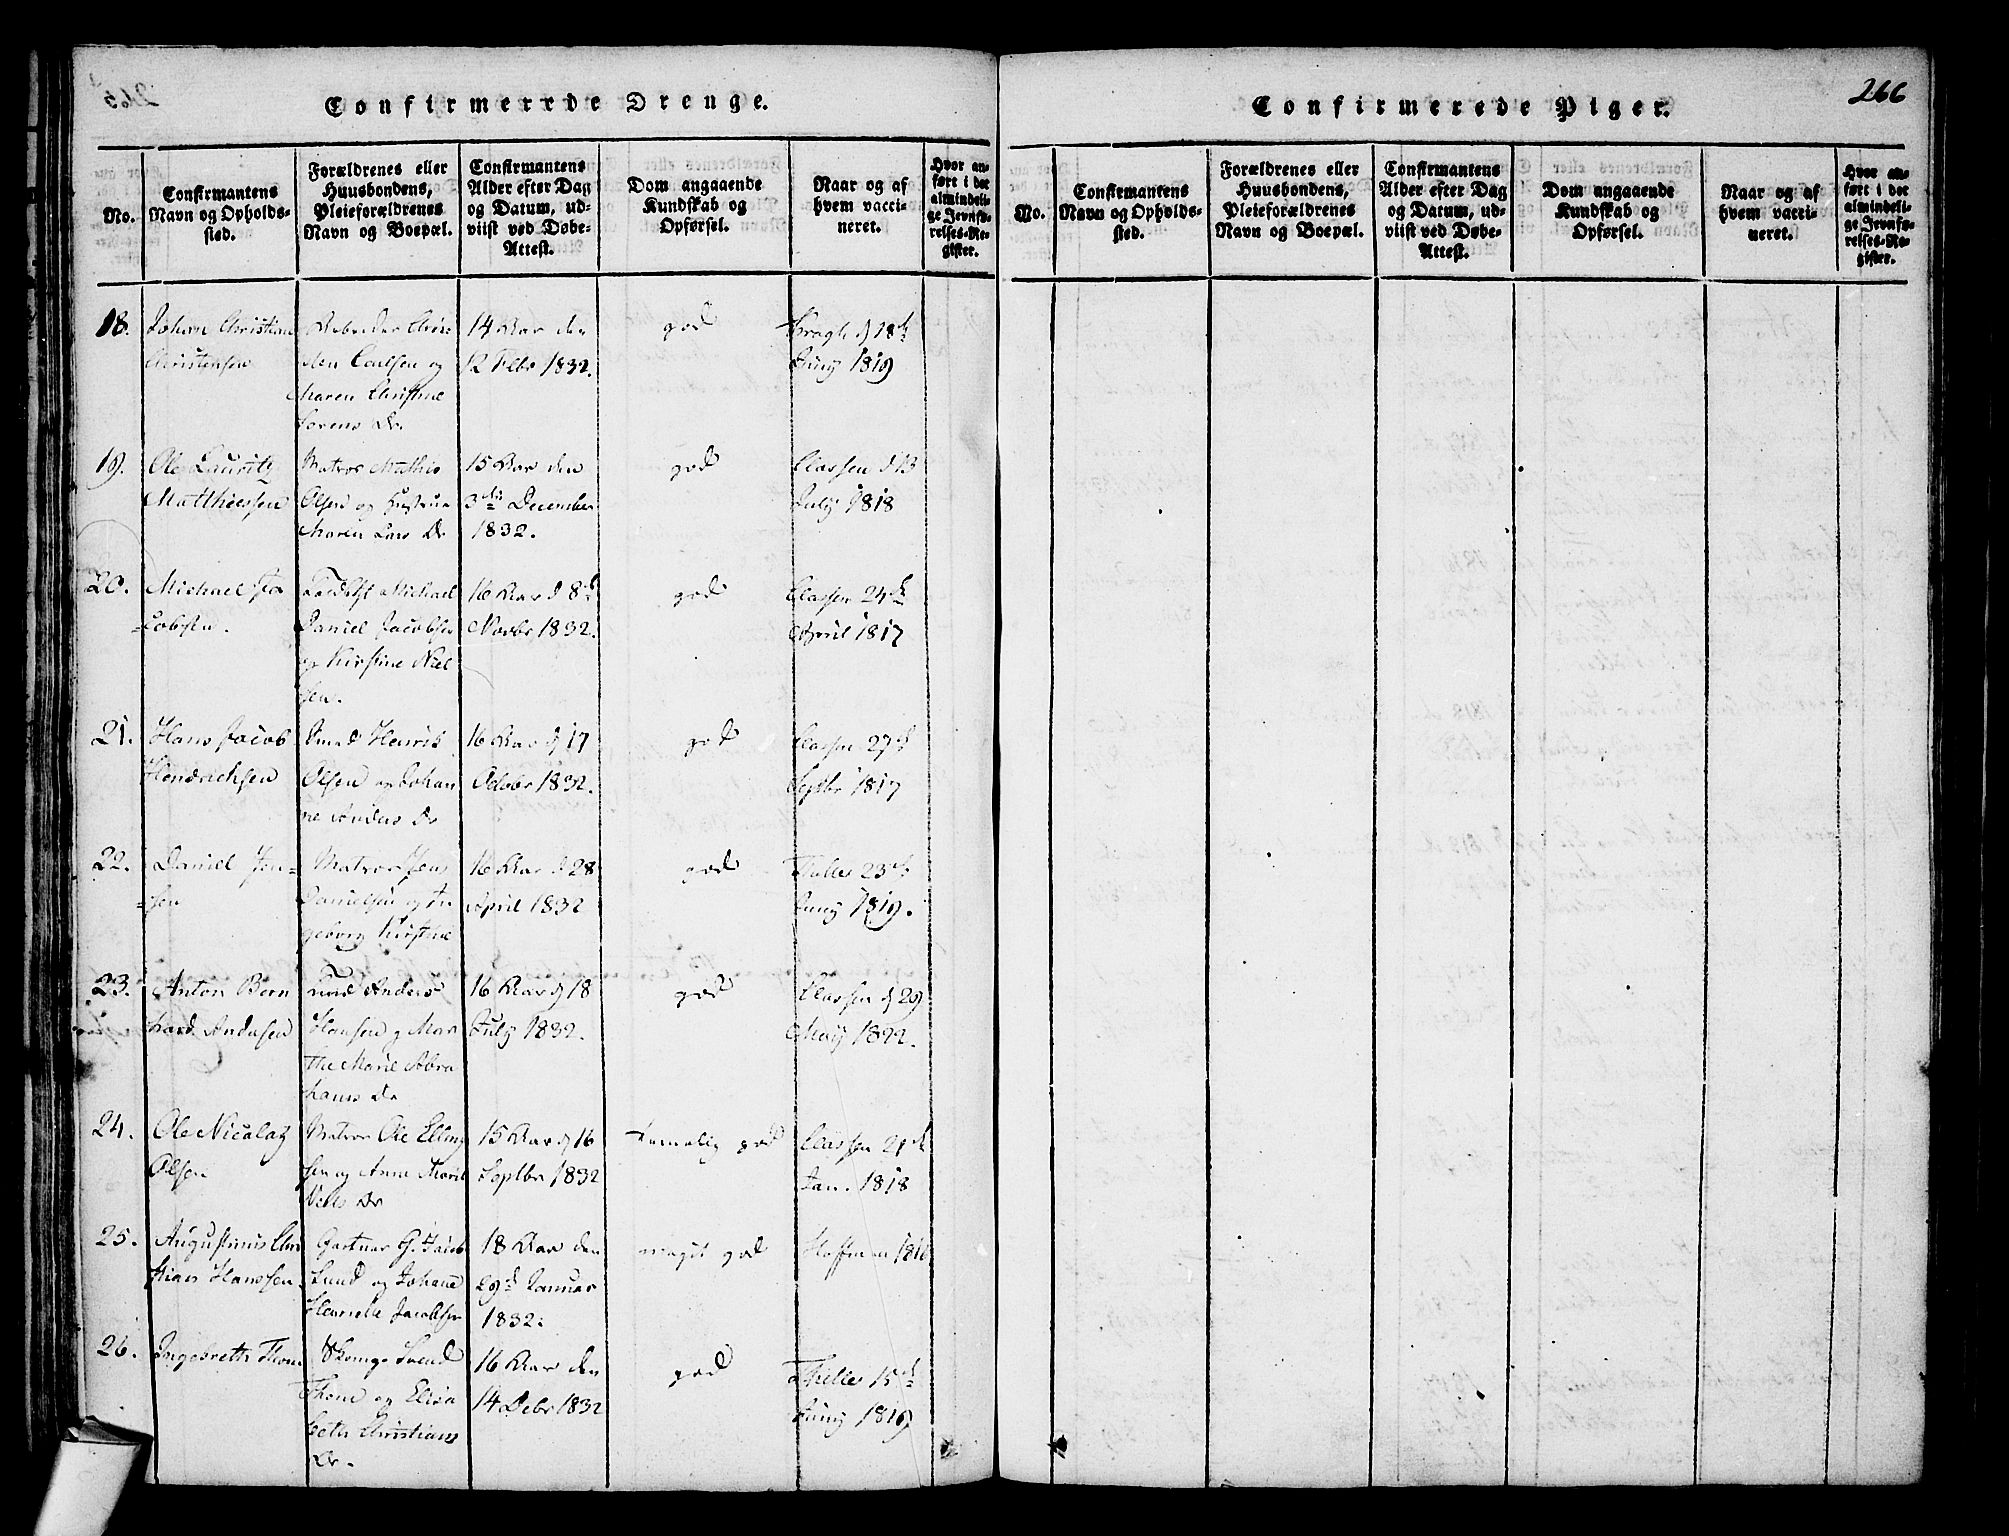 Confirmerede Drenge.
No.
Confirmantens
Navn og Opholds-
sted.
Forældrenes eller
Huusbondens,
Pleieforældrenes
Navn og Boepæl.
Confirmantens
Alder efter Dag
og Datum, ud-
viist ved Døbe-
Attest.
Dom angaaende
Kundskab og
Opførsel.
Naar og af
hvem vacci-
neret.
Hvor an-
ført i det
almindeli-
ge Jevnfø-
relses-Re-
gister.
18.
Johan Christian
Christensen
Carlsen og
Maren Christine
Sørens Dr.
14 Aar den
12 Febr 1832.
god
Kragh d 18de
Juny 1819
19.
Ole Lauritz
Matthiessen
Matros Mathis
Olsen og Hustrue
Maren Lars Dr
15 Aar den
3die December
1832.
god
Classen d 13
July 1818
20.
Michael Ja
cobsen.
Michael
Daniel Jacobsen
og Kirstine Niel
sen.
16 Aar d 8de
Novbr 1832.
god
Classen 24de
April 1817
21.
Hans Jacob
Hendrichsen
Henrik
Olsen og Johan
ne Anders Dr
16 Aar d 17
Octobr 1832.
god
Classen 27de
Septbr 1817
22.
Daniel Jen-
sen
Matros Jens
Danielsen og In
geborg Kirstine
16 Aar d 28
April 1832
god
Thelles 23de
Juny 1819.
23.
Anton Bern
hard Andersen
Anders
Hansen og Mar
the Marie Abra
hams Dr
16 Aar d 18
July 1832.
god
Classen d 29
May 1822.
24.
Ole Nicolay
Olsen
Matros Ole Elling
sen og Anne Marie
Niels Dr
15 Aar d 16
Septbr 1832
temelig god
Classen 21de
Jan. 1818
25.
Augustinus Chri
stian Hanssen
Gartner G. Jacob
Lund og Johane
Henriette Jacobsen
18 Aar den
29de Januar
1832.
meget god
Hoffman
26.
Ingebreth Thom
Svend
Thom og Elisa
beth Christians
Dr.
16 Aar den
14 Debr 1832
god
Thelles 15de
Juny 1819
Confirmerede Piger.
266
No.
Confirmantens
Navn og Opholds-
sted.
Forældrenes eller
Huusbondens,
Pleieforældrenes
Navn og Boepæl.
Confirmantens
Alder efter Dag
og Datum, ud-
viist ved Døbe-
Attest.
Dom angaaende
Kundskab og
Opførsel.
Naar og af
hvem vacci-
neret.
Hvor an-
ført i det
almindeli-
ge Jevnfø-
relses-Re-
gister.